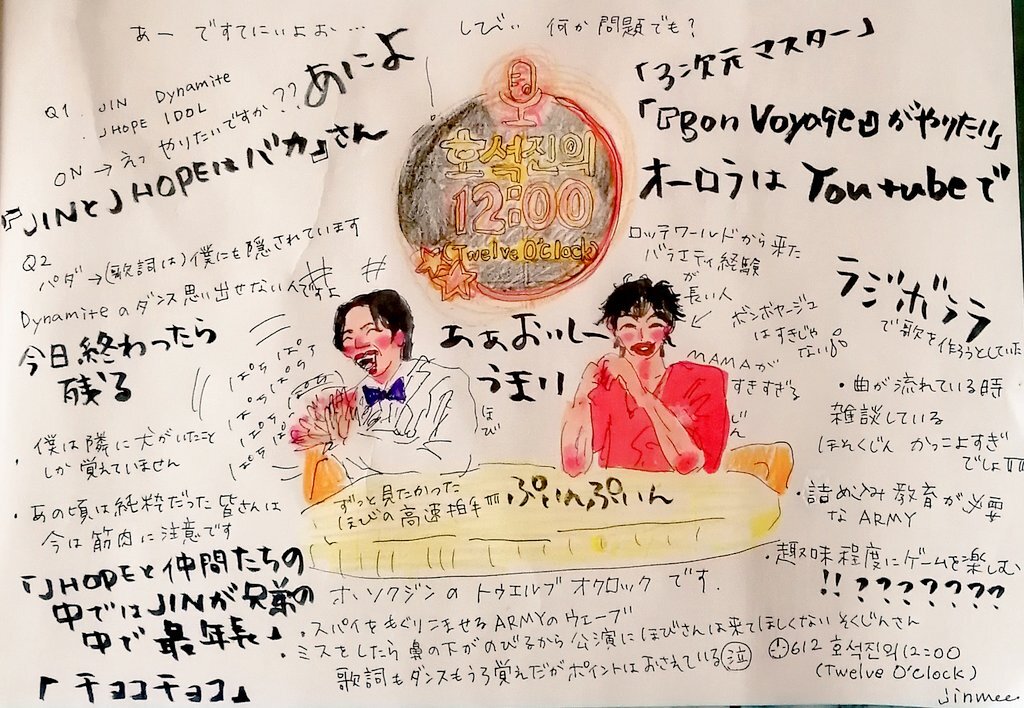 あー ですてにいよお…
しびい 何か問題でも?
Q1 JIN Dynamite
JHOPE IDOL
ON → えっ やりたいですか??
あによ
『JINとJHOPEはバカ』さん
Q2
パダ→(歌詞は)僕にも隠されています
Dynamiteのダンス思い出せないんですよ
今日終わったら
残る
・僕は隣に犬がいたこと
しか覚えていません
・あの頃は純粋だった皆さんは
今は筋肉に注意です
「JHOPEと仲間たちの
中ではJINが兄弟の
中で最年長」
「チョコチョコ」
호석진의
12:00
(Twelve O'clock)
ぱちぱち
ぱちぱち
ぱちぱち
ぱちぱち
ほび
ああおいしー
うまい
じん
ずっと見たかった
ほびの高速拍手
ぷいんぷいん
「3次元マスター」
「『Bon Voyage』がやりたい」
オーロラは Youtubeで
ロッテワールドから来た
バラエティ経験
が
長い人
ボンボヤージュ
はすきじゃ
ない
MAMAが
すきすぎる
ラジボララ
で歌を作ろうとしていた
・曲が流れている時
雑談している
ほそくじん かっこよすぎ
でしょ
・詰め込み教育が必要
なARMY
・趣味程度にゲームを楽しむ
!!???????
ホソクジンの トゥエルブ オクロック です.
・スパイをもぐりこませるARMYのウェーブ
・ミスをしたら鼻の下がのびるから公演にほびさんは来てほしくない そくじんさん
歌詞もダンスもうろ覚えだがポイントはおさえている(泣)
612 호석진의12:00
(Twelve O'clock)
jinmee